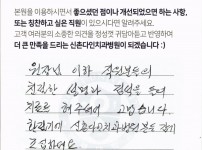 본원을 이용하시면서 좋으셨던 점이나 개선되었으면 하는 사항,
또는 칭찬하고 싶은 직원이 있으시다면 알려주세요.
고객 여러분의 소중한 의견을 정성껏 귀담아듣고 반영하여
더 큰 만족을 드리는 신촌다인치과병원이 되겠습니다 :)
원장님 이하 직원분들의
친절한 설명과 정성을 들여
치료 해 주셔서 고맙습니다.
신촌다인치과병원